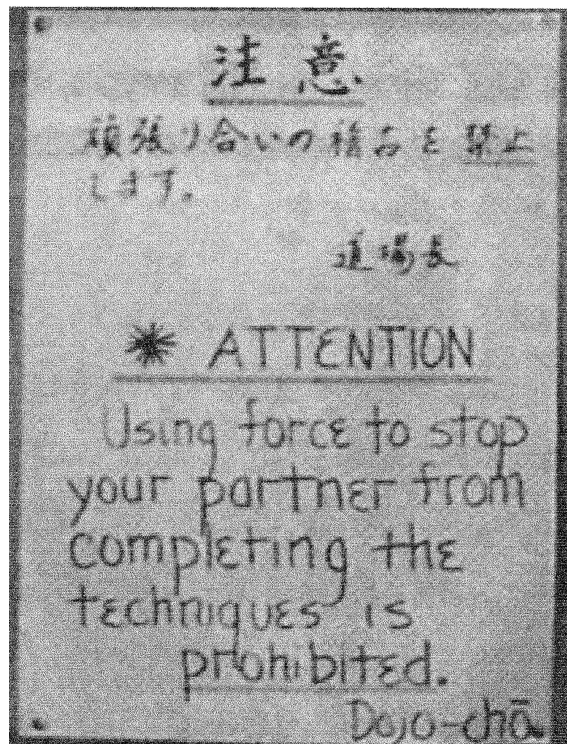 注意
頑張り合いの稽古を禁止
します。
道場長
* ATTENTION
Using force to stop
your partner from
completing the
techniques is
prohibited.
Dojo-chō